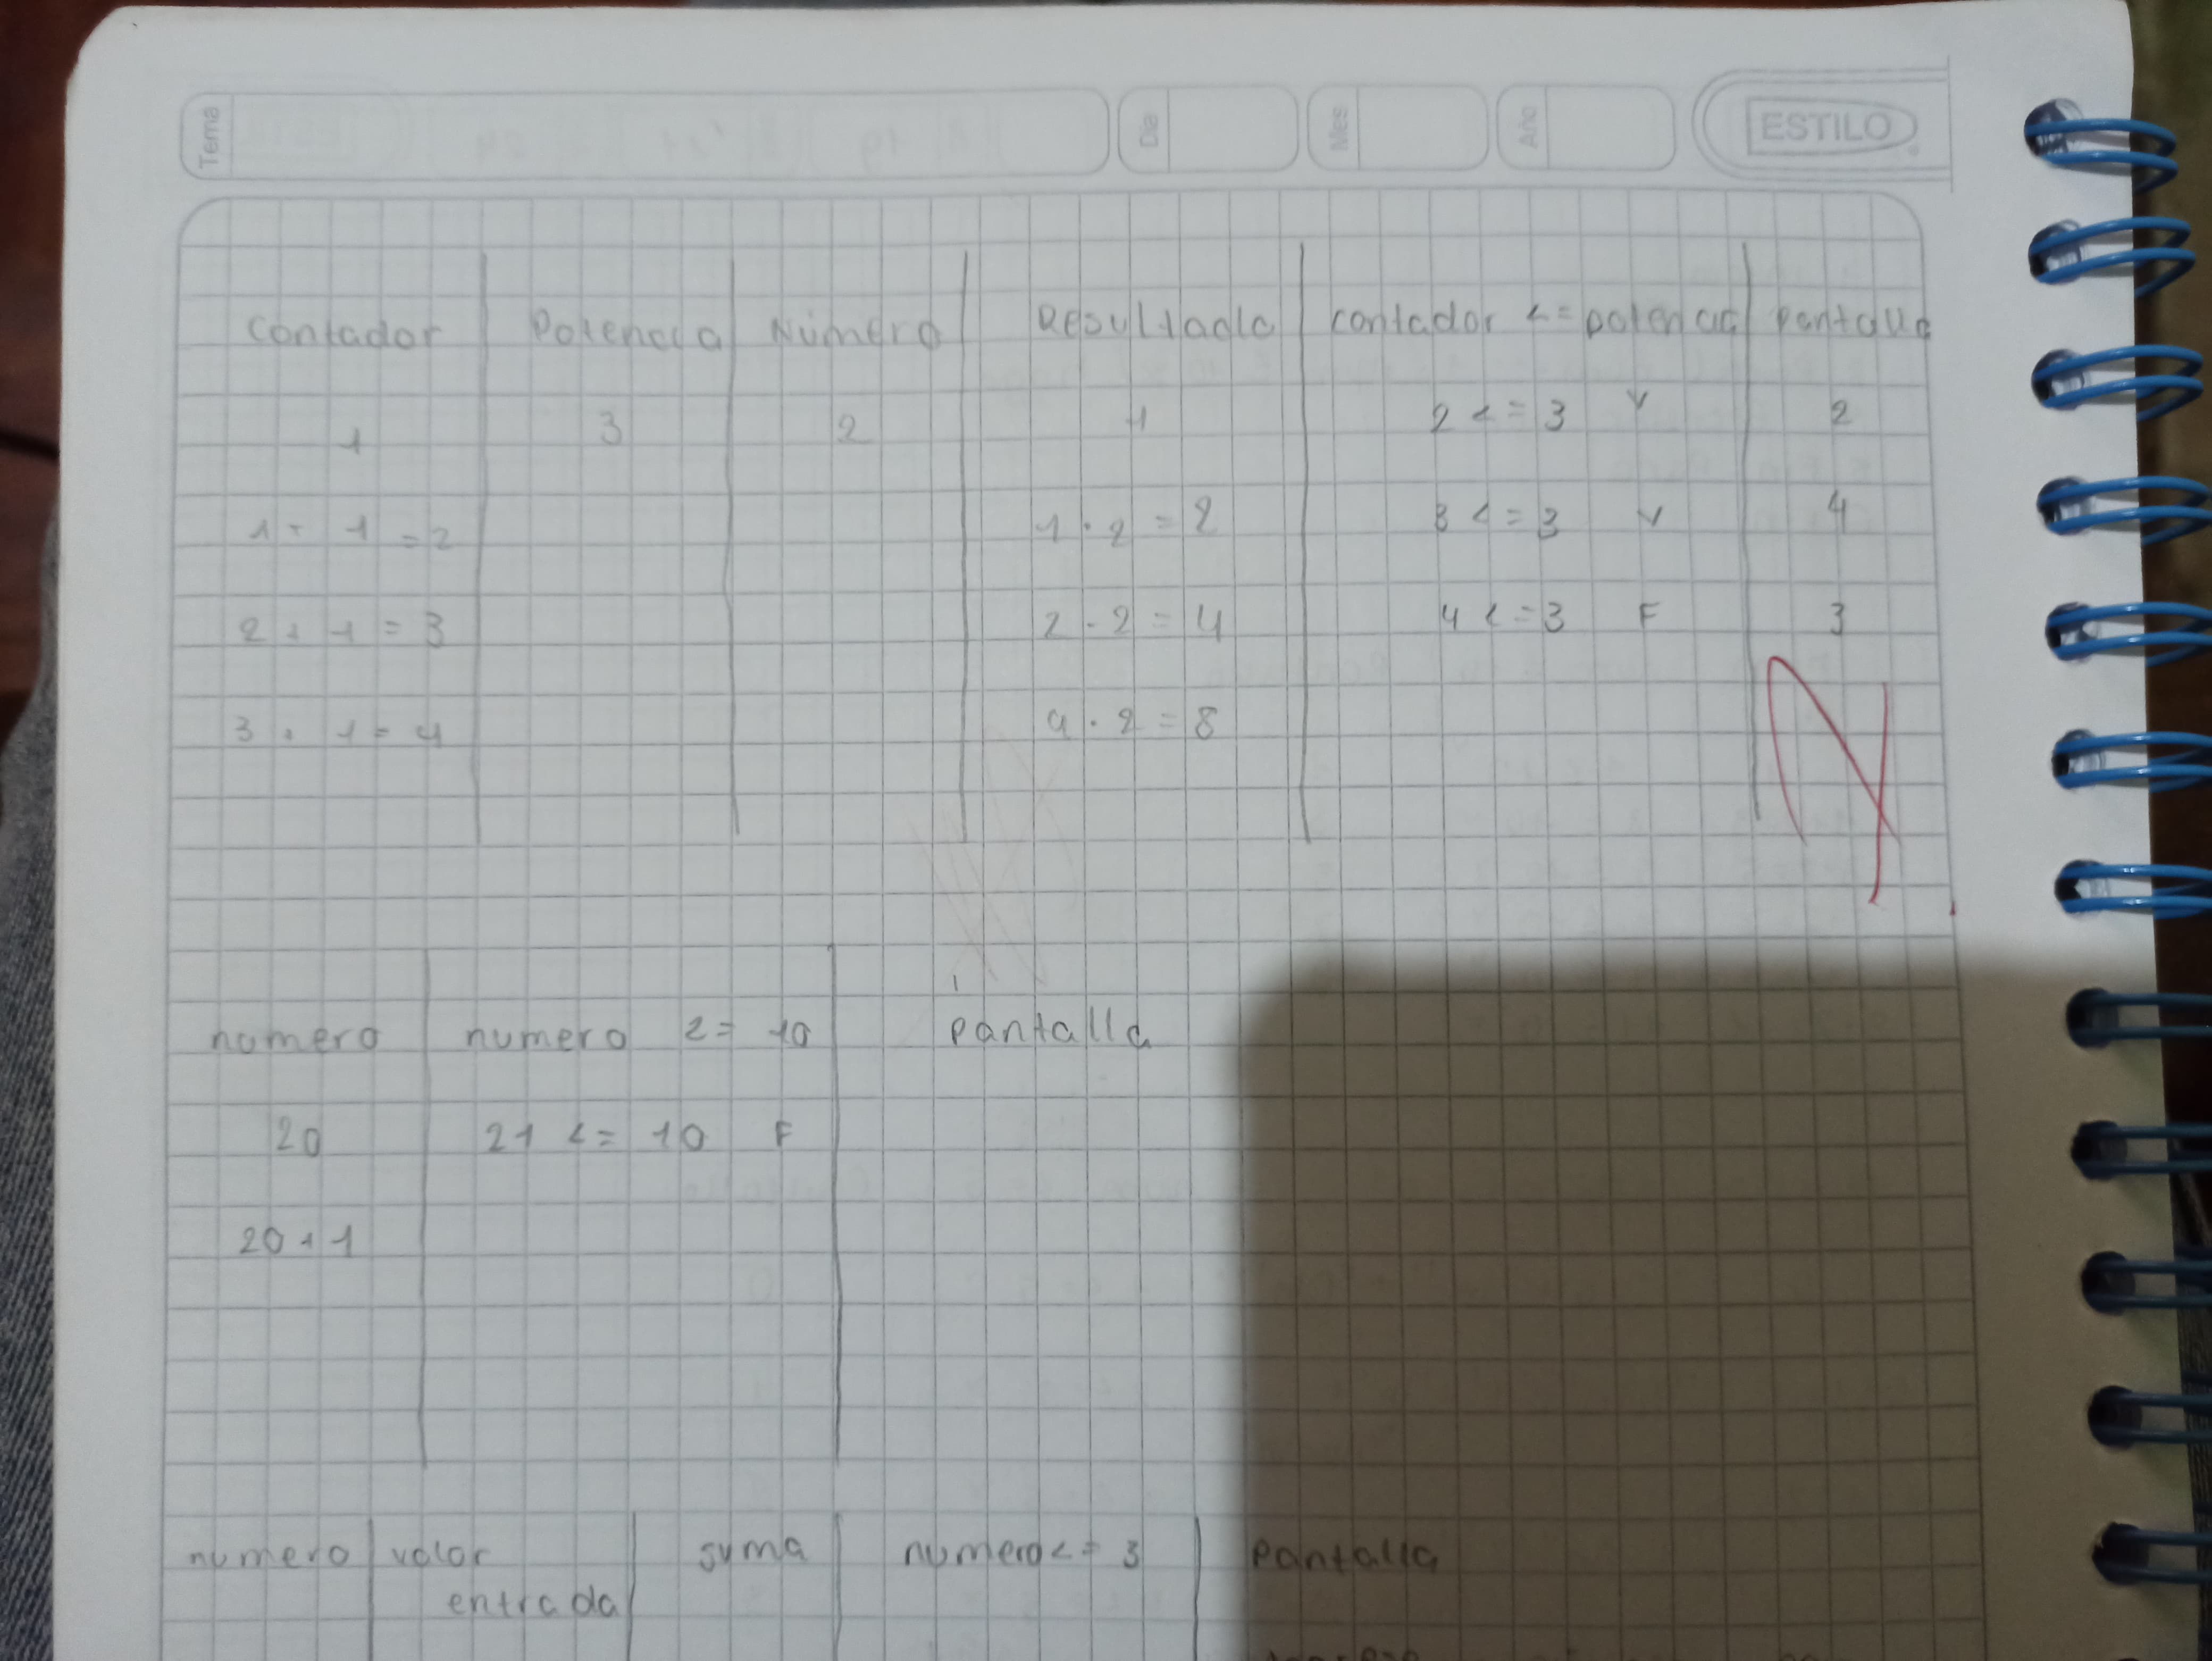 Tema Día Mes Año ESTILO
Contador Potencia Número Resultado contador <= potencia Pantalla
1 3 2 1 2 <= 3 V 2
1 + 1 = 2 1 · 2 = 2 3 <= 3 V 4
2 + 1 = 3 2 · 2 = 4 4 <= 3 F 3
3 + 1 = 4 4 · 2 = 8
numero numero <= 10 pantalla
20 21 <= 10 F
20 + 1
numero valor entrada suma numero <= 3 Pantalla